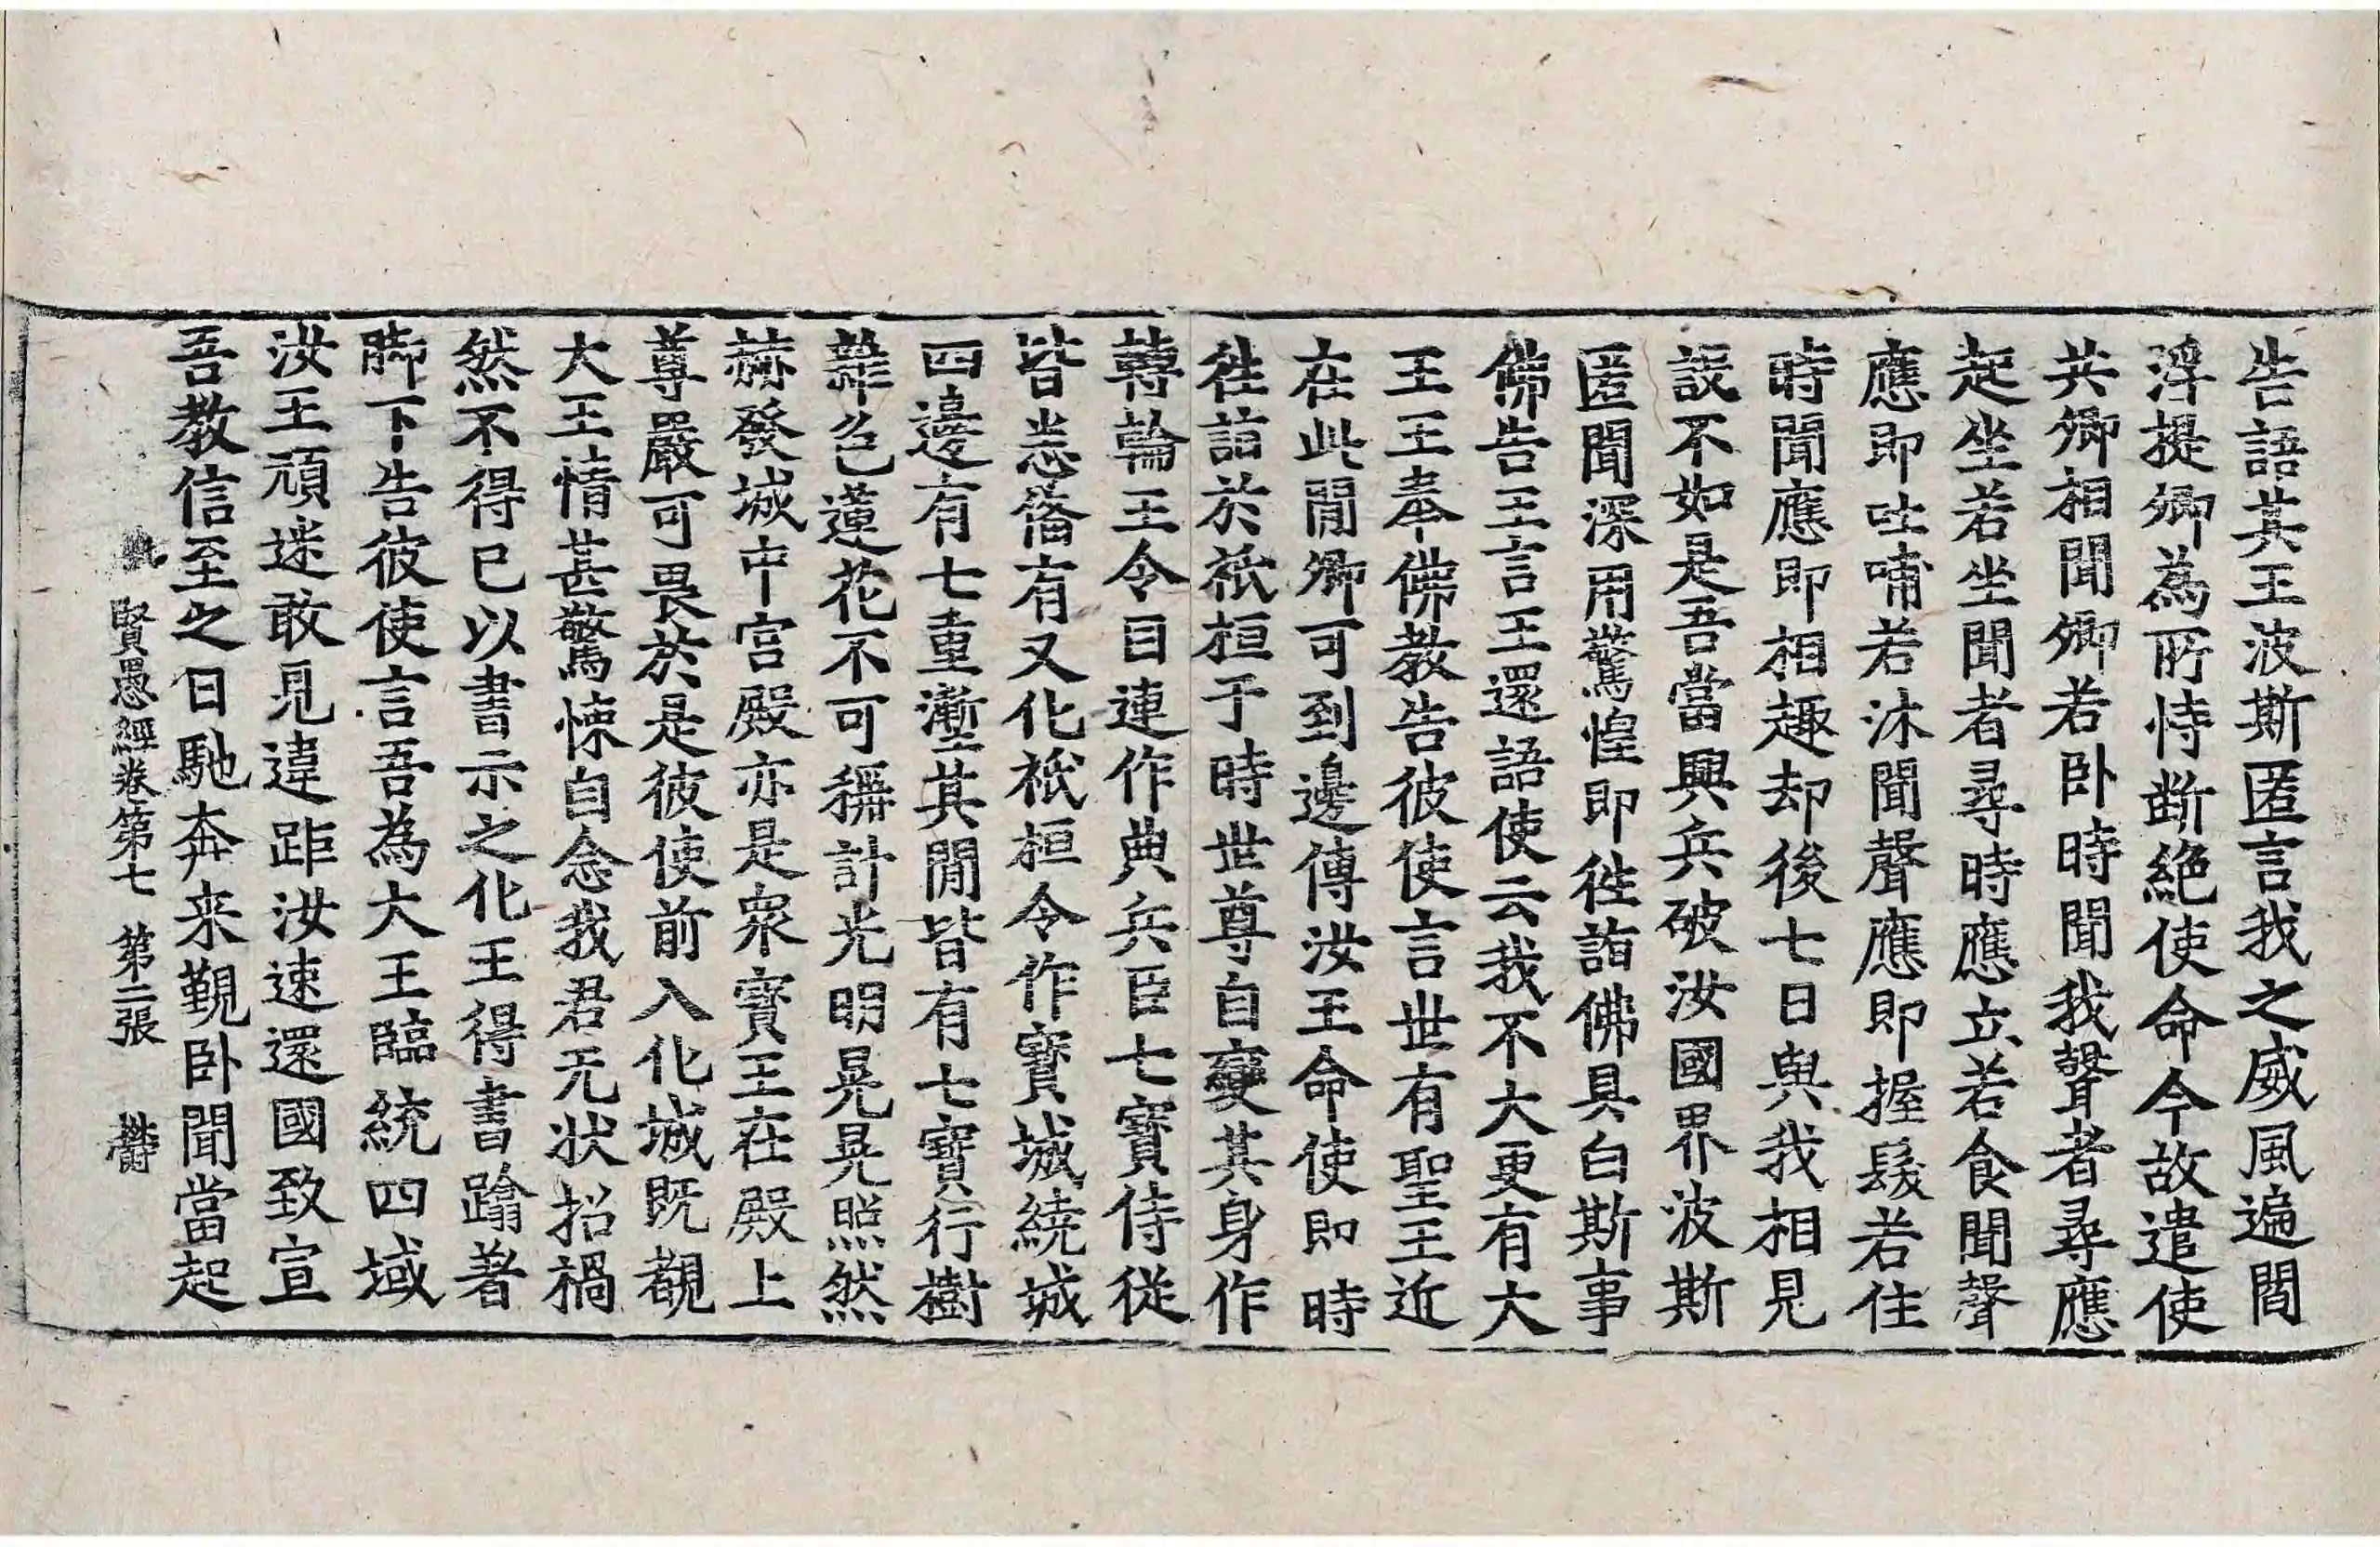 告語其王波斯匿言我之威風遍閻
浮提卿為所恃断絶使命今故遣使
共卿相聞卿若卧時聞我聲者尋應
起坐若坐聞者尋時應立若食聞聲
應即吐哺若沐聞聲應即握髮若住
時聞應即相趣却後七日與我相見
設不如是吾當興兵破汝國界波斯
匿聞深用驚惶即徃詣佛具白斯事
佛告王言王還語使云我不大更有大
王王奉佛教告彼使言世有聖王近
在此閒卿可到邊傳汝王命使即時
徃詣於祇桓于時世尊自變其身作
轉輪王令目連作典兵臣七寳侍從
皆悉俻有又化祇桓令作寳城繞城
四邊有七重壍其閒皆有七寳行樹
雜色蓮花不可稱計光明晃晃照然
赫發城中宫殿亦是衆寳王在殿上
尊嚴可畏於是彼使前入化城既覩
大王情甚驚悚自念我君无状招禍
然不得已以書示之化王得書蹹著
脚下告彼使言吾為大王臨統四域
汝王頑迷敢見違距汝速還國致宣
吾教信至之日馳奔来覲卧聞當起
賢愚經卷第七　第二張　欝